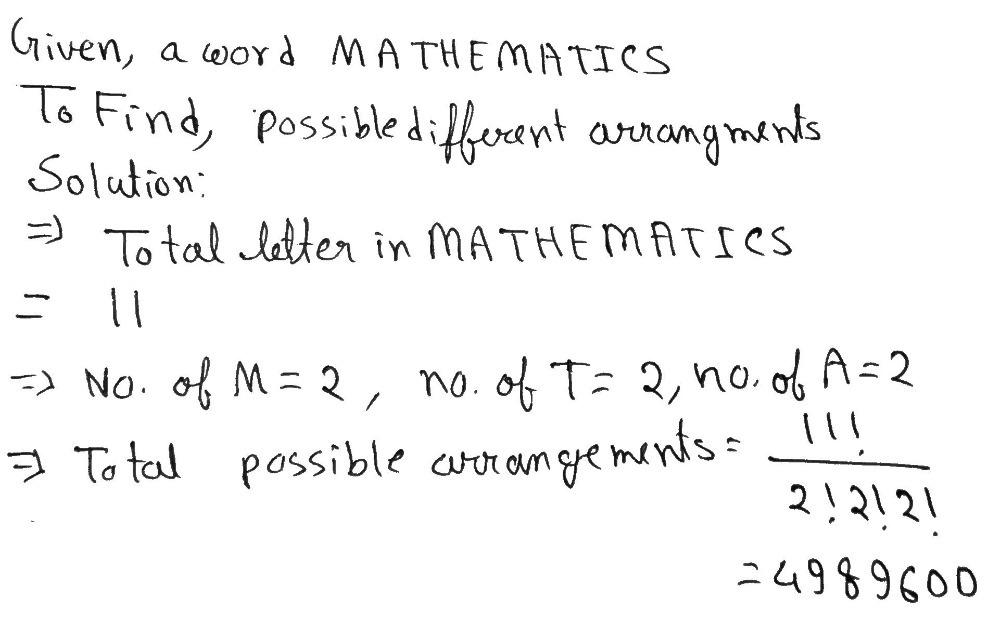 Given, a word MATHEMATICS
To Find, possible different arrangments
Solution:
⇒ Total letter in MATHEMATICS
= 11
⇒ No. of M = 2, no. of T = 2, no. of A = 2
⇒ Total possible arrangements = 11! / 2! 2! 2!
= 4989600